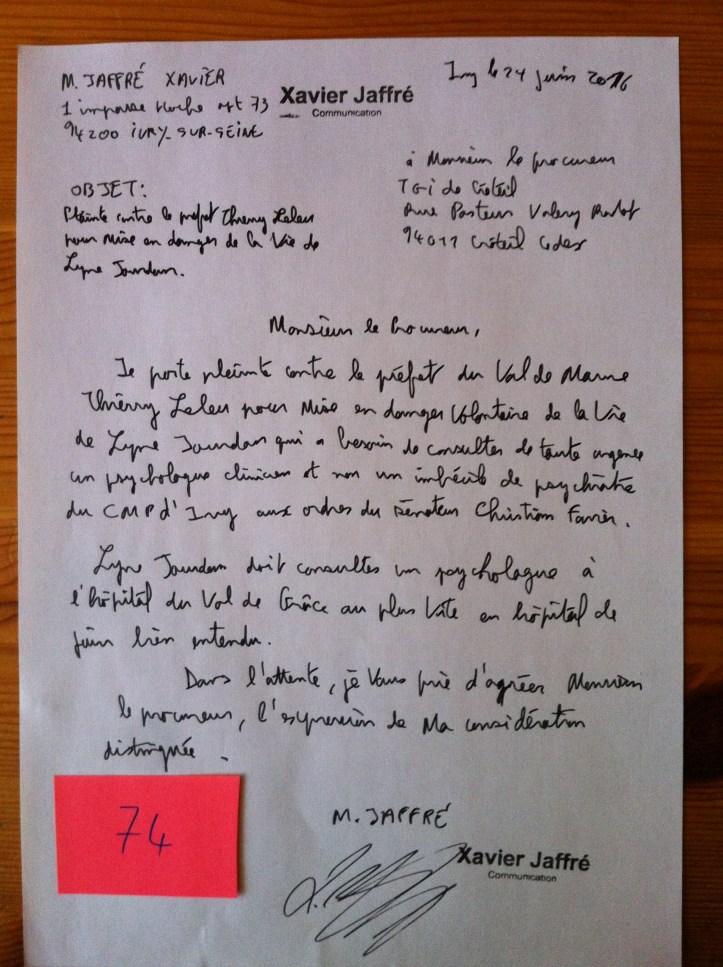 M. JAFFRÉ XAVIER
1 impasse Hoche apt 73
94200 IVRY-SUR-SEINE
Xavier Jaffré
Communication
Ivry le 24 juin 2016
à Monsieur le procureur
TGI de Créteil
Rue Pasteur Valery Radot
94011 Créteil Cedex
OBJET:
Plainte contre le préfet Thierry Leleu
pour Mise en danger de la Vie de
Lyne Jourdan.
Monsieur le Procureur,
Je porte plainte contre le préfet du Val de Marne
Thierry Leleu pour Mise en danger Volontaire de la Vie
de Lyne Jourdan qui a besoin de consulter de toute urgence
un psychologue clinicien et non un imbécile de psychiatre
du CMP d'Ivry aux ordres du Sénateur Christian Favier.
Lyne Jourdan doit consulter un psychologue à
l'hôpital du Val de Grâce au plus Vite en hôpital de
jour bien entendu.
Dans l'attente, je Vous prie d'agréer Monsieur
le procureur, l'expression de Ma considération
distinguée.
74
M. JAFFRÉ
Xavier Jaffré
Communication